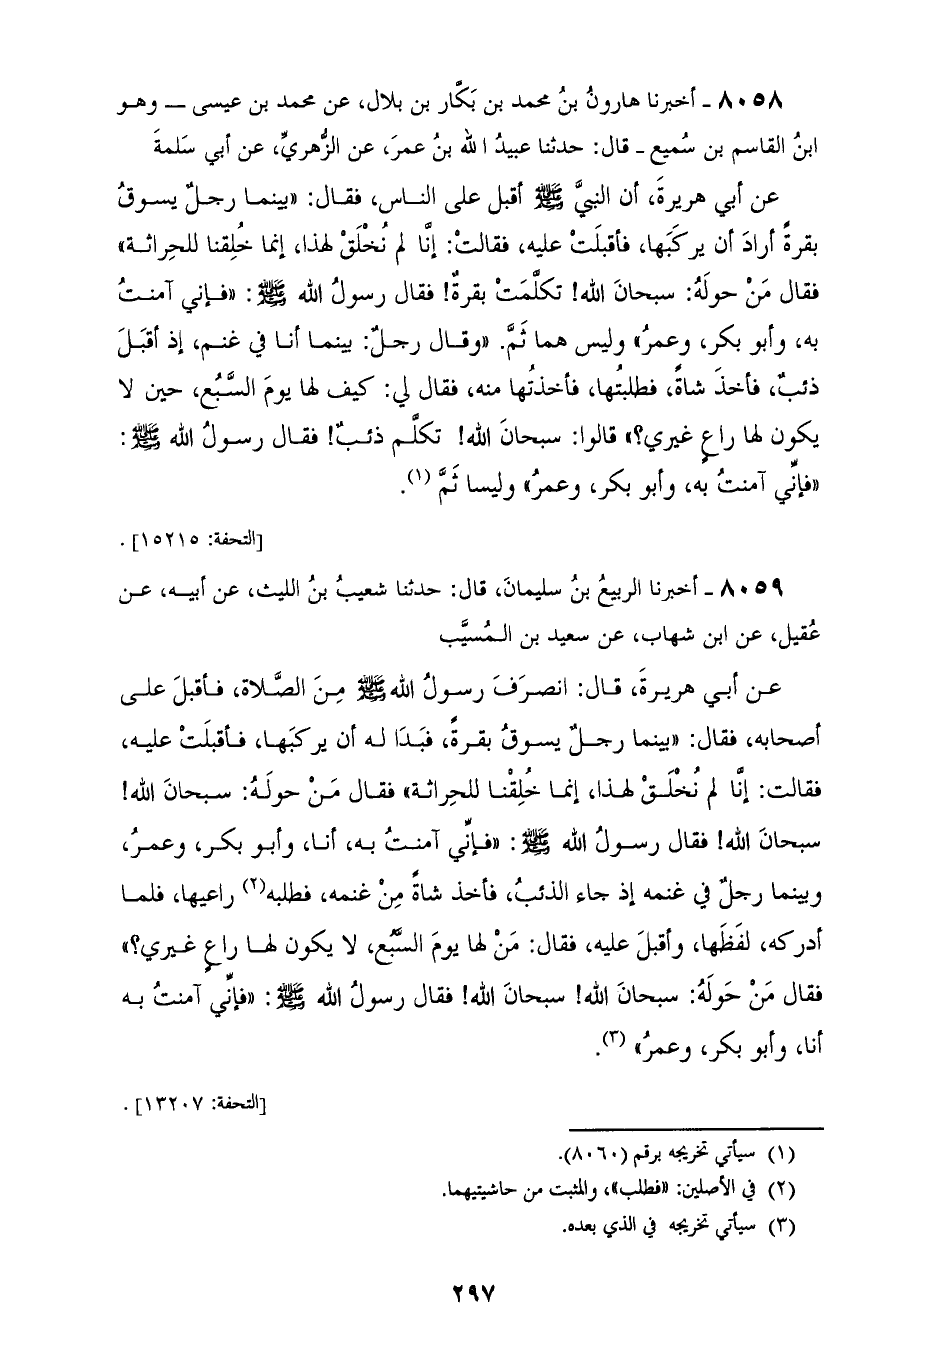 ٨٠٥٨ ـ أخبرنا هارونُ بنُ محمد بن بَكَّار بن بلال، عن محمد بن عيسى ـــ وهـو
ابنُ القاسم بن سُميع ـ قال: حدثنا عبيدُ الله بنُ عمرَ، عن الزُّهريِّ، عن أبي سَلمةَ
عن أبي هريرةَ، أن النبيَّ ﷺ أقبل على النـاس، فقـال: «بينمـا رجـلٌ يسـوقُ
بقرةً أرادَ أن يركَبَها، فأقبلَتْ عليه، فقالتْ: إنَّا لم نُخْلَقْ لهذا، إنما خُلِقنا للحِراثـة»
فقال مَنْ حولَهُ: سبحانَ الله! تكلَّمَتْ بقرةٌ! فقال رسولُ الله ﷺ: «فـإني آمنـتُ
به، وأبو بكر، وعمرُ» وليس هما ثَمَّ. «وقـال رجـلٌ: بينمـا أنـا في غنـم، إذ أقبَـلَ
ذئبٌ، فأخذَ شاةً، فطلبتُها، فأخذتُها منه، فقال لي: كيف لها يومَ السَّبُع، حين لا
يكون لها راعٍ غيري؟» قالوا: سبحانَ الله! تكلَّـم ذئـبٌ! فقـال رسـولُ الله ﷺ:
«فإنِّي آمنتُ به، وأبو بكر، وعمرُ» وليسا ثَمَّ (١).
[التحفة: ١٥٢١٥] .
٨٠٥٩ ـ أخبرنا الربيعُ بنُ سليمانَ، قال: حدثنا شعيبُ بنُ الليث، عن أبيـه، عـن
عُقيل، عن ابن شهاب، عن سعيد بن الـمُسيَّب
عـن أبـي هريـرةَ، قـال: انصـرَفَ رسـولُ الله ﷺ مِـنَ الصَّـلاة، فـأقبلَ علـى
أصحابه، فقال: «بينما رجـلٌ يسـوقُ بقـرةً، فبَـدَا لـه أن يركبَهـا، فـأقبلَـتْ عليـه،
فقالت: إنَّا لم نُخْلَـقْ لهـذا، إنمـا خُلِقْنـا للحِراثـة» فقـال مَـنْ حولَـهُ: سـبحانَ الله!
سبحانَ الله! فقال رسـولُ الله ﷺ: «فـإنِّي آمنـتُ بـه، أنـا، وأبـو بكـر، وعمـرُ،
وبينما رجلٌ في غنمه إذ جاء الذئبُ، فأخذ شاةً مِنْ غنمه، فطلبه(٢) راعيها، فلمـا
أدركه، لفَظَها، وأقبلَ عليه، فقال: مَنْ لها يومَ السَّبُع، لا يكون لهـا راعٍ غـيري؟»
فقال مَنْ حَولَهُ: سبحانَ الله! سبحانَ الله! فقال رسولُ الله ﷺ: «فإنِّي آمنتُ بـه
أنا، وأبو بكر، وعمرُ» (٣).
[التحفة: ١٣٢٠٧] .
(١) سيأتي تخريجه برقم (٨٠٦٠).
(٢) في الأصلين: «فطلب»، والمثبت من حاشيتيهما.
(٣) سيأتي تخريجه في الذي بعده.
٢٩٧